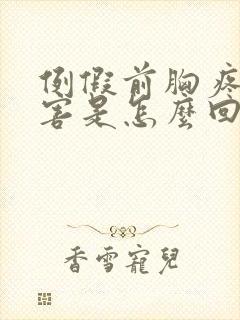 例假前胸疼
害是怎麼回
香雪寵兒